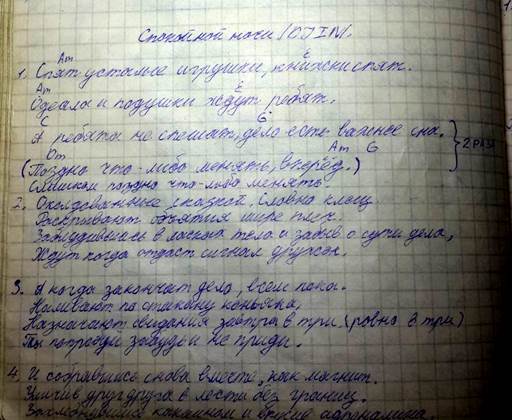 Спокойной ночи /DJIN/.
Am E
1. Спят усталые игрушки, книжки спят.
Am E
Одеала и подушки ждут ребят.
C G
А ребята не спешат, дело есть важнее сна.
Dm Am G
(Поздно что-либо менять, вперёд.) 2 раза
Слишком поздно что-либо менять.
2. Околдованные сказкой, словно клещ.
Раскрывают объятия шире плеч.
Заблудившись в ласках тела и забыв о сути дела,
Ждут когда отдаст сигнал
3. А когда закончат дело, всем пока.
Наливают по стакану коньяка,
Назначают свидания завтра в три. (ровно в три)
Ты попробуй и не приди.
4. И собравшись снова вместе, как магнит.
Уличив друг друга в лести без границ.